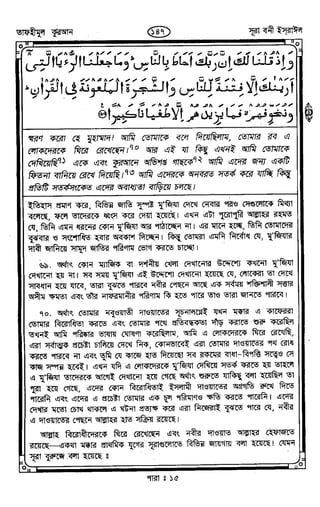 তাফহীমুল কুরআন
১৪৭
সূরা বনী ইসরাঈল
وَإِذْ قُلْنَا لَكَ إِنَّ رَبَّكَ أَحَاطَ بِالنَّاسِ ۚ وَمَا جَعَلْنَا الرُّءْيَا الَّتِي
أَرَيْنَاكَ إِلَّا فِتْنَةً لِّلنَّاسِ وَالشَّجَرَةَ الْمَلْعُونَةَ فِي الْقُرْآنِ ۚ
وَنُخَوِّفُهُمْ فَمَا يَزِيدُهُمْ إِلَّا طُغْيَانًا كَبِيرًا
স্মরণ করো হে মুহাম্মাদ! আমি তোমাকে বলে দিয়েছিলাম, তোমার রব এ
লোকদেরকে ঘিরে রেখেছেন।৭০ আর এই যা কিছু এখনই আমি তোমাকে
দেখিয়েছি৭১ একে এবং কুরআনে অভিশপ্ত গাছকে৭২ আমি এদের জন্য একটি
ফিতনা বানিয়ে রেখে দিয়েছি।৭৩ আমি এদেরকে অনবরত সতর্ক করে যাচ্ছি কিন্তু
প্রতিটি সতর্কসংকেত এদের অবাধ্যতা বাড়িয়ে চলছে।
ইতিহাস প্রমাণ করে, বিভিন্ন জাতি সুস্পষ্ট মু'জিযা দেখে নেবার পরও সেগুলোকে মিথ্যা
বলেছে, ফলে তাদেরকে ধ্বংস করে দেয়া হয়েছে। এখন এটা পুরোপুরি আল্লাহর রহমত
যে, তিনি এমন ধরনের কোন মু'জিযা আর পাঠাচ্ছেন না। এর মানে হচ্ছে, তিনি তোমাদের
বুঝবার ও সংশোধিত হবার অবকাশ দিচ্ছেন। কিন্তু তোমরা এমনি নির্বোধ যে, মু'জিযার
দাবী জানিয়ে সামূদ জাতির পরিণাম ভোগ করতে চাচ্ছো।
৬৯. অর্থাৎ কোন ম্যাজিক বা দর্শনীয় খেলা দেখানোর উদ্দেশ্যে কখনো মু'জিযা
দেখানো হয় না। সব সময় মু'জিযা এই উদ্দেশ্যে দেখানো হয়েছে যে, লোকেরা তা দেখে
সাবধান হয়ে যাবে, তারা বুঝতে পারবে নবীর পেছনে আছে এক সর্বময় শক্তিশালী সত্তার
অসীম ক্ষমতা এবং তাঁর নাফরমানীর পরিণাম কি হতে পারে তাও তারা জানতে পারবে।
৭০. অর্থাৎ তোমার নবুওয়াতী দাওয়াতের সূচনালগ্নেই যখন মক্কার এ কাফেররা
তোমার বিরোধিতা করতে এবং তোমার পথে প্রতিবন্ধকতা দাঁড় করাতে শুরু করেছিল
তখনই আমি পরিষ্কার ভাষায় ঘোষণা করেছিলাম, আমি এ লোকদেরকে ঘিরে রেখেছি,
এরা সর্বাত্মক প্রচেষ্টা চালিয়ে দেখে নিক, কোনভাবেই এরা তোমার দাওয়াতের পথ রোধ
করতে পারবে না এবং তুমি যে কাজে হাত দিয়েছো সব রকমের বাধা-বিপত্তি সত্ত্বেও সে
কাজ সম্পন্ন হবেই। এখন যদি এ লোকদেরকে মু'জিযা দেখিয়ে সতর্ক করতে হয় তাহলে
এ মু'জিযা তাদেরকে আগেই দেখানো হয়ে গেছে অর্থাৎ শুরুতে যাকিছু বলা হয়েছিল তা
পুরা হয়ে গেছে, এদের কোন বিরোধিতাই ইসলামী দাওয়াতের অগ্রগতি রুখে দিতে
পারেনি এবং এদের এ প্রচেষ্টা তোমার এক চুল পরিমাণও ক্ষতি করতে পারেনি। এদের
দেখার মতো চোখ থাকলে এ ঘটনা প্রত্যক্ষ করে এরা নিজেরাই বুঝতে পারে যে, নবীর
এ দাওয়াতের পেছনে আল্লাহর হাত সক্রিয় রয়েছে।
আল্লাহ বিরোধীদেরকে ঘিরে রেখেছেন এবং নবীর দাওয়াত আল্লাহর হেফাজতে
রয়েছে—একথা মক্কার প্রাথমিক যুগের সূরাগুলোতে বিভিন্ন জায়গায় বলা হয়েছে। যেমন
সূরা বুরুজে বলা হয়েছে :
পারা : ১৫